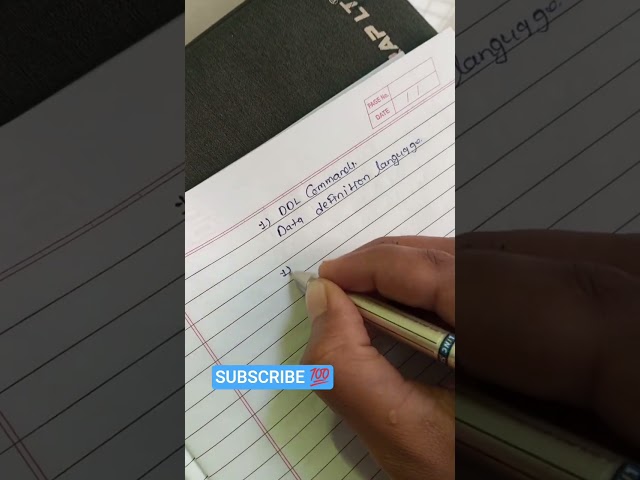 AP LT
PAGE No.
DATE / /
1) DDL Commands.
Data definition language
1)
language
SUBSCRIBE 💯